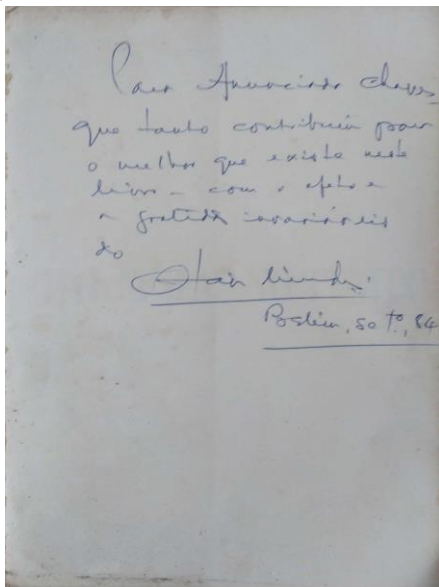 Para Annunciada Chaves,
que tanto contribuiu para
o melhor que existe neste
livro – com o afeto e
a gratidão invariáveis
do
Belém, set°, 84